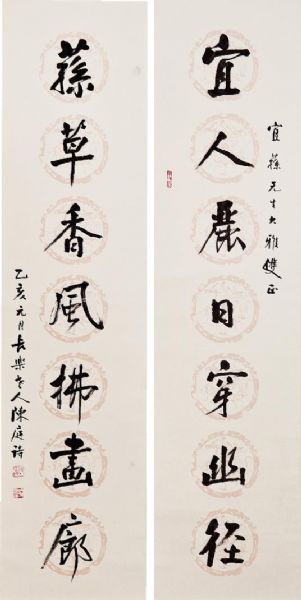 宜蓀先生大雅雙正
宜人麗日穿幽徑
蓀草香風拂畫廊
乙亥元月長樂老人陳庭詩